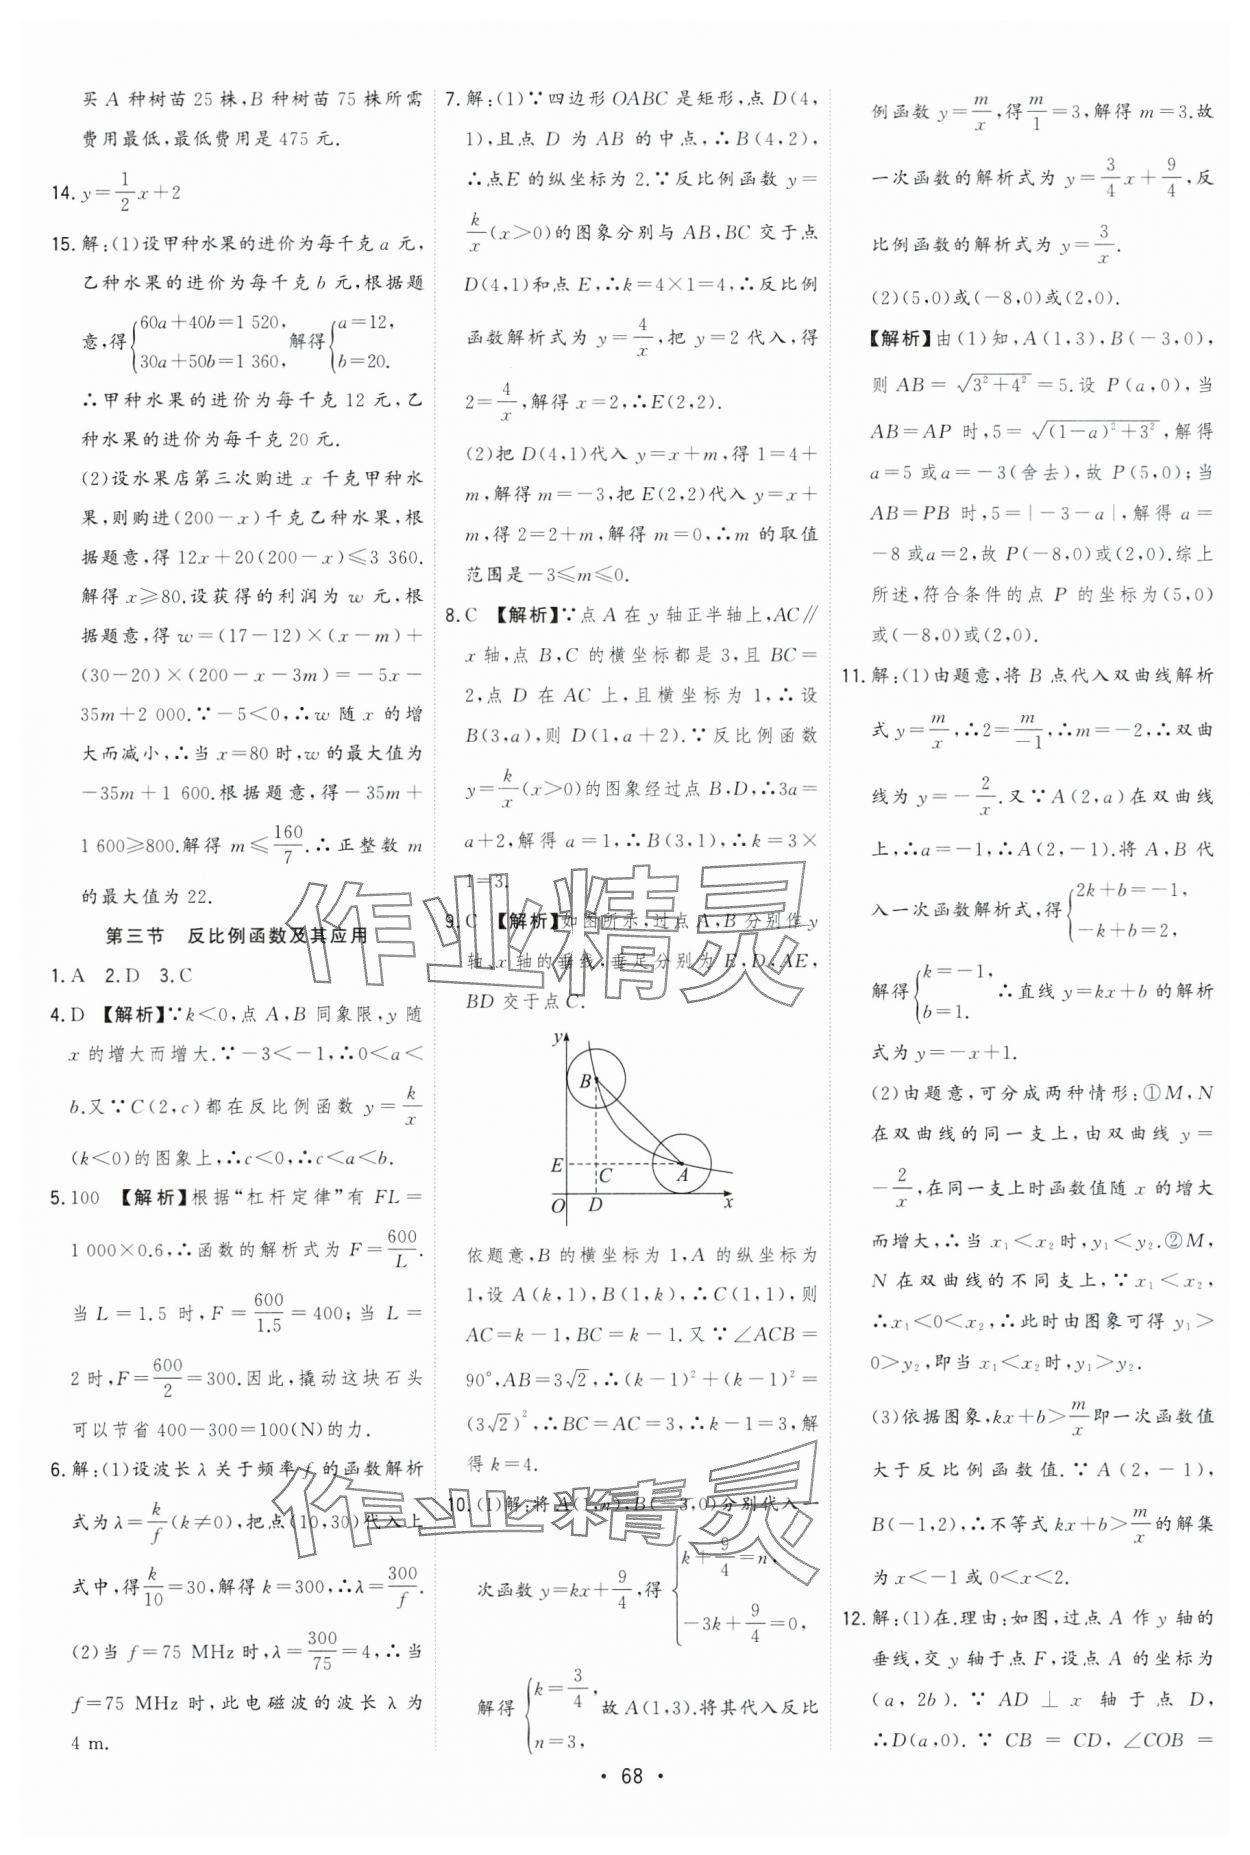 买 A 种树苗 25 株,B 种树苗 75 株所需
费用最低,最低费用是 475 元.
14. y=\frac{1}{2}x+2
15. 解:(1)设甲种水果的进价为每千克 a 元,
乙种水果的进价为每千克 b 元,根据题
意,得{60a+40b=1 520, 30a+50b=1 360, 解得{a=12, b=20.
∴甲种水果的进价为每千克 12 元,乙
种水果的进价为每千克 20 元.
(2)设水果店第三次购进 x 千克甲种水
果,则购进(200-x)千克乙种水果,根
据题意,得 12x+20(200-x)≤3 360.
解得 x≥80.设获得的利润为 w 元,根
据题意,得 w=(17-12)×(x-m)+
(30-20)×(200-x-3m)=-5x-
35m+2 000.∵-5<0,∴w 随 x 的增
大而减小,∴当 x=80 时,w 的最大值为
-35m+1 600.根据题意,得-35m+
1 600≥800.解得 m≤\frac{160}{7}.∴正整数 m
的最大值为 22.
第三节 反比例函数及其应用
1. A 2. D 3. C
4. D 【解析】∵k<0,点 A,B 同象限,y 随
x 的增大而增大.∵-3<-1,∴0<a<
b.又∵C(2,c)都在反比例函数 y=\frac{k}{x}
(k<0)的图象上,∴c<0,∴c<a<b.
5. 100 【解析】根据“杠杆定律”有 FL=
1 000×0.6,∴函数的解析式为 F=\frac{600}{L}.
当 L=1.5 时,F=\frac{600}{1.5}=400;当 L=
2 时,F=\frac{600}{2}=300.因此,撬动这块石头
可以节省 400-300=100(N)的力.
6. 解:(1)设波长 λ 关于频率 f 的函数解析
式为 λ=\frac{k}{f}(k≠0),把点(10,30)代入上
式中,得\frac{k}{10}=30,解得 k=300,∴λ=\frac{300}{f}.
(2)当 f=75 MHz 时,λ=\frac{300}{75}=4,∴当
f=75 MHz 时,此电磁波的波长 λ 为
4 m.
7. 解:(1)∵四边形 OABC 是矩形,点 D(4,
1),且点 D 为 AB 的中点,∴B(4,2),
∴点E 的纵坐标为 2.∵反比例函数 y=
\frac{k}{x}(x>0)的图象分别与 AB,BC 交于点
D(4,1)和点 E,∴k=4×1=4,∴反比例
函数解析式为 y=\frac{4}{x},把 y=2 代入,得
2=\frac{4}{x},解得 x=2,∴E(2,2).
(2)把 D(4,1)代入 y=x+m,得 1=4+
m,解得 m=-3,把 E(2,2)代入 y=x+
m,得 2=2+m,解得 m=0,∴m 的取值
范围是-3≤m≤0.
8. C 【解析】∵点 A 在 y 轴正半轴上,AC∥
x 轴,点 B,C 的横坐标都是 3,且 BC=
2,点 D 在 AC 上,且横坐标为 1,∴设
B(3,a),则 D(1,a+2).∵反比例函数
y=\frac{k}{x}(x>0)的图象经过点 B,D,∴3a=
a+2,解得 a=1,∴B(3,1),∴k=3×
1=3.
9. C 【解析】如图所示,过点 A,B 分别作 y
轴、x 轴的垂线,垂足分别为 E,D,AE,
BD 交于点 C.
y
B
E
C
A
O D x
依题意,B 的横坐标为 1,A 的纵坐标为
1,设 A(k,1),B(1,k),∴C(1,1),则
AC=k-1,BC=k-1.又∵∠ACB=
90°,AB=3√2,∴(k-1)²+(k-1)²=
(3√2)²,∴BC=AC=3,∴k-1=3,解
得 k=4.
10. (1)解:将 A(1,n),B(-3,0)分别代入一
次函数 y=kx+\frac{9}{4},得{k+\frac{9}{4}=n, -3k+\frac{9}{4}=0,
解得{k=\frac{3}{4}, n=3, 故 A(1,3).将其代入反比
例函数 y=\frac{m}{x},得\frac{m}{1}=3,解得 m=3.故
一次函数的解析式为 y=\frac{3}{4}x+\frac{9}{4},反
比例函数的解析式为 y=\frac{3}{x}.
(2)(5,0)或(-8,0)或(2,0).
【解析】由(1)知,A(1,3),B(-3,0),
则 AB=√(3²+4²)=5.设 P(a,0),当
AB=AP 时,5=√((1-a)²+3²),解得
a=5 或a=-3(舍去),故 P(5,0);当
AB=PB 时,5=|-3-a|,解得 a=
-8 或a=2,故 P(-8,0)或(2,0).综上
所述,符合条件的点 P 的坐标为(5,0)
或(-8,0)或(2,0).
11. 解:(1)由题意,将 B 点代入双曲线解析
式 y=\frac{m}{x},∴2=\frac{m}{-1},∴m=-2,∴双曲
线为 y=-\frac{2}{x}.又∵A(2,a)在双曲线
上,∴a=-1,∴A(2,-1).将 A,B 代
入一次函数解析式,得{2k+b=-1, -k+b=2,
解得{k=-1, b=1. ∴直线 y=kx+b 的解析
式为 y=-x+1.
(2)由题意,可分成两种情形:①M,N
在双曲线的同一支上,由双曲线 y=
-\frac{2}{x},在同一支上时函数值随 x 的增大
而增大,∴当 x₁<x₂ 时,y₁<y₂.②M,
N 在双曲线的不同支上,∵x₁<x₂,
∴x₁<0<x₂,∴此时由图象可得 y₁>
0>y₂,即当 x₁<x₂时,y₁>y₂.
(3)依据图象,kx+b>\frac{m}{x}即一次函数值
大于反比例函数值.∵A(2,-1),
B(-1,2),∴不等式 kx+b>\frac{m}{x}的解集
为 x<-1 或 0<x<2.
12. 解:(1)在.理由:如图,过点 A 作 y 轴的
垂线,交 y 轴于点 F,设点 A 的坐标为
(a, 2b). ∵ AD ⊥ x 轴于点 D,
∴D(a,0). ∵ CB = CD, ∠COB =
• 68 •
作业精灵
作业精灵